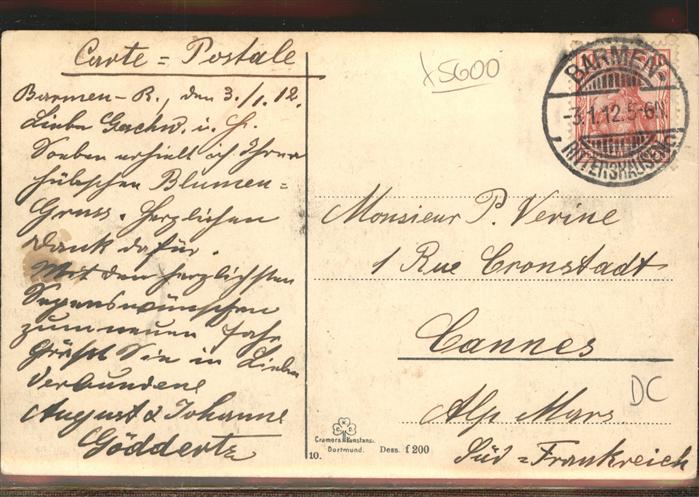 Carte = Postale
x5600
BARMEN-
-3.1.12.5-6N
RITTERSHAUSEN
Barmen-R., den 3./1. 12.
Liebe Geschw. i. H.
Soeben erhielt ich Ihren
hübschen Blumen=
Gruss. Herzlichen
Dank dafür.
Mit den herzlichsten
Segenswünschen
zum neuen Jahr
grüßt Sie in Liebe
Verbundene
August & Johanne
Gödderts
Monsieur P. Verine
1 Rue Cronstadt
Cannes
DC
Alp Mars
Süd=Frankreich
Cramers Kunstanst.
Dortmund.
10.
Dess. f 200